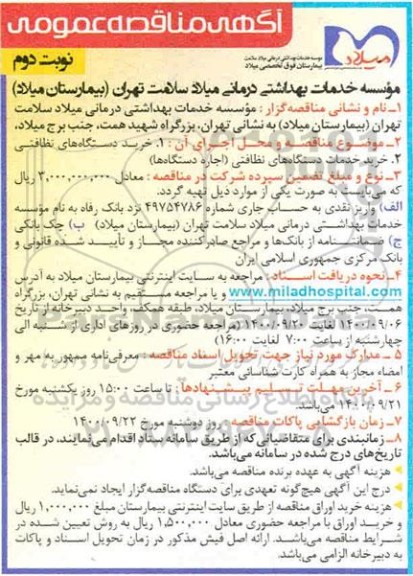 آگهی مناقصه عمومی
نوبت دوم
میلاد
موسسه خدمات بهداشتی درمانی میلاد سلامت
بیمارستان فوق تخصصی میلاد
مؤسسه خدمات بهداشتی درمانی میلاد سلامت تهران (بیمارستان میلاد)
۱-نام و نشانی مناقصه‌گزار : مؤسسه خدمات بهداشتی درمانی میلاد سلامت
تهران (بیمارستان میلاد) به نشانی تهران، بزرگراه شهید همت، جنب برج میلاد،
۲-موضوع مناقصه و محل اجرای آن : ۱. خرید دستگاه‌های نظافتی
۲. خرید خدمات دستگاه‌های نظافتی (اجاره دستگاه‌ها)
۳-نوع و مبلغ تضمین سپرده شرکت در مناقصه : معادل ۳,۰۰۰,۰۰۰,۰۰۰ ریال
که می‌بایست به صورت یکی از موارد ذیل تهیه گردد.
الف) واریز نقدی به حساب جاری شماره ۴۹۷۵۴۷۸۶ نزد بانک رفاه به نام مؤسسه
خدمات بهداشتی درمانی میلاد سلامت تهران (بیمارستان میلاد) ب) چک بانکی
ج) ضمانتنامه از بانک‌ها و مراجع صادرکننده مجاز و تأیید شده قانونی و
بانک مرکزی جمهوری اسلامی ایران
۴-نحوه دریافت اسناد : مراجعه به سایت اینترنتی بیمارستان میلاد به آدرس
www.miladhospital.com و یا مراجعه مستقیم به نشانی تهران، بزرگراه
همت، جنب برج میلاد، بیمارستان میلاد، طبقه همکف، واحد دبیرخانه از تاریخ
۱۴۰۰/۰۹/۰۶ لغایت ۱۴۰۰/۰۹/۲۰ (مراجعه حضوری در روزهای اداری از شنبه الی
چهارشنبه از ساعت ۷:۰۰ لغایت ۱۶:۰۰)
۵-مدارک مورد نیاز جهت تحویل اسناد مناقصه : معرفی‌نامه ممهور به مهر و
امضاء مجاز به همراه کارت شناسائی معتبر
۶-آخرین مهلت تسلیم پیشنهادها : تا ساعت ۱۵:۰۰ روز یکشنبه مورخ
۱۴۰۰/۰۹/۲۱ می‌باشد.
۷-زمان بازگشایی پاکات مناقصه : روز دوشنبه مورخ ۱۴۰۰/۰۹/۲۲
۸-زمانبندی برای متقاضیانی که از طریق سامانه ستاد اقدام می‌نمایند، در قالب
تاریخ‌های درج شده در سامانه می‌باشد.
هزینه آگهی به عهده برنده مناقصه می‌باشد.
درج این آگهی هیچ‌گونه تعهدی برای دستگاه مناقصه‌گزار ایجاد نمی‌نماید.
هزینه خرید اوراق مناقصه از طریق سایت اینترنتی بیمارستان مبلغ ۱,۰۰۰,۰۰۰ ریال
و خرید اوراق با مراجعه حضوری معادل ۱,۵۰۰,۰۰۰ ریال به روش تعیین شده در
شرایط مناقصه می‌باشد. ارائه اصل فیش مذکور در زمان تحویل اسناد و پاکات
به دبیرخانه الزامی می‌باشد.